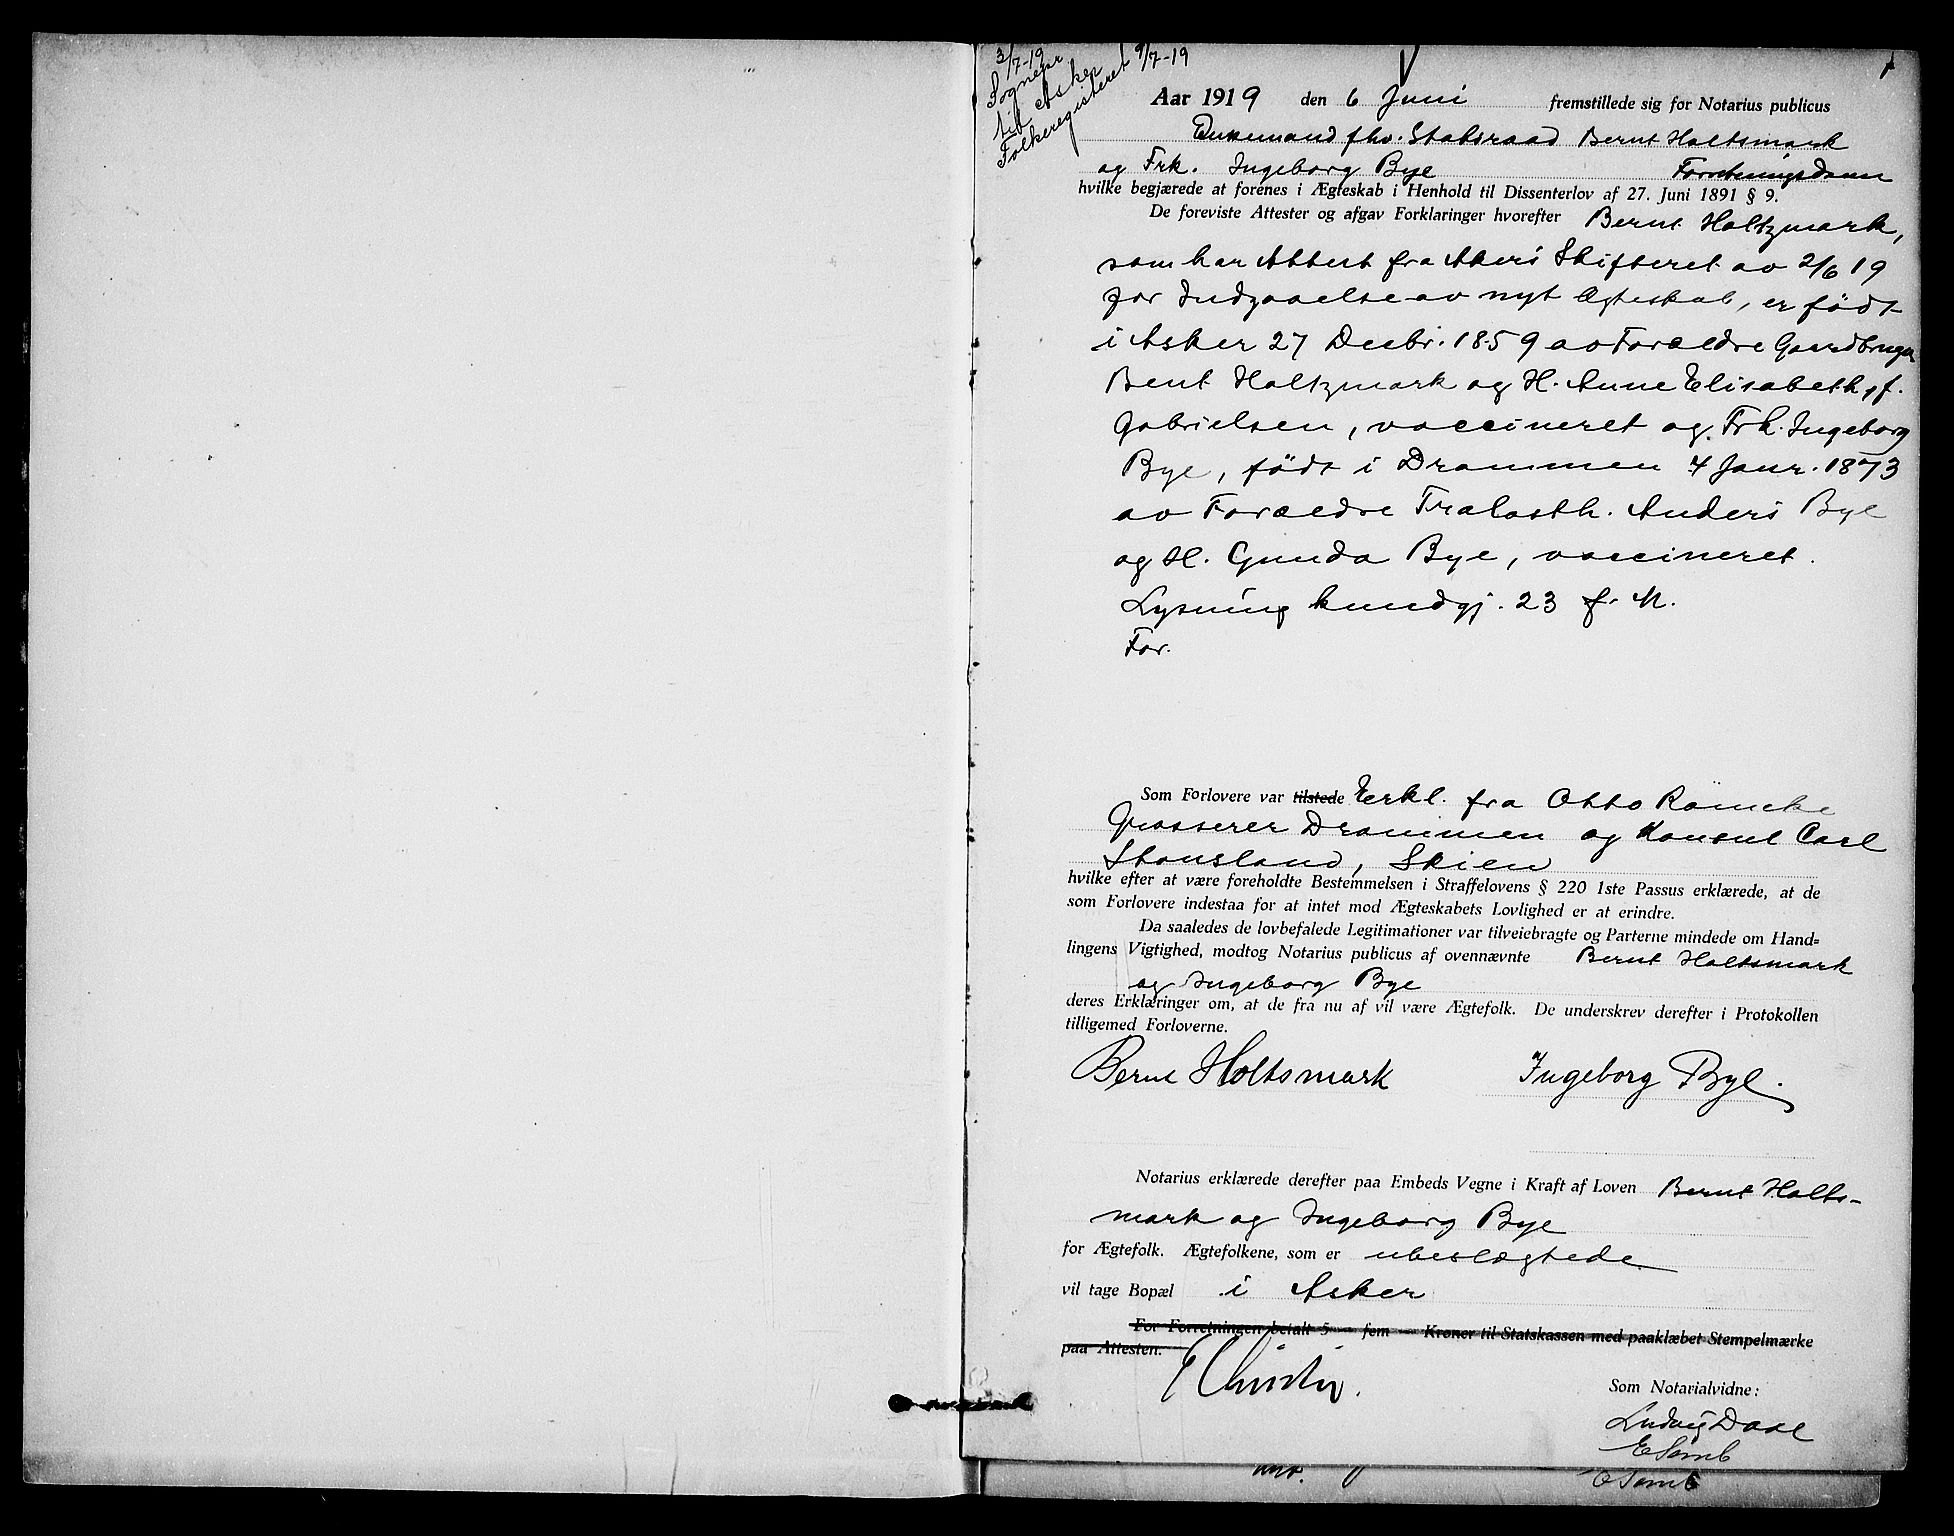 3/7-19
Sognepr
til Asker
Folkeregisteret 9/7-19
Aar 1919 den 6 Juni fremstillede sig for Notarius publicus
Enkemand fhv. Statsraad Bernt Holtsmark
og Frk. Ingeborg Bye
hvilke begjærede at forenes i Ægteskab i Henhold til Dissenterlov af 27. Juni 1891 § 9.
De foreviste Attester og afgav Forklaringer hvorefter Bernt Holtzmark,
som har Attest fra Akers Skifteret av 2/6 19
for Indgaaelse av nyt Ægteskab, er födt
i Asker 27 Decbr. 1859 av Forældre Gaardbruger
Bent Holtzmark og H. Anne Elisabeth, f.
Gabrielsen, vaccineret og Frk. Ingeborg
Bye, födt i Drammen 4 Janr. 1873
av Forældre Tralasth. Anders Bye
og H. Gunda Bye, vaccineret.
Lysning kundgj. 23 f. M.
For.
Som Forlovere var tilstede Erkl. fra Otto Römcke
Grosserer Drammen og Konsul Carl
Stousland, Skien
hvilke efter at være foreholdte Bestemmelsen i Straffelovens § 220 1ste Passus erklærede, at de
som Forlovere indestaa for at intet mod Ægteskabets Lovlighed er at erindre.
Da saaledes de lovbefalede Legitimationer var tilveiebragte og Parterne mindede om Hand=
lingens Vigtighed, modtog Notarius publicus af ovennævnte Bernt Holtsmark
og Ingeborg Bye
deres Erklæringer om, at de fra nu af vil være Ægtefolk. De underskrev derefter i Protokollen
tilligemed Forloverne.
Bernt Holtsmark Ingeborg Bye.
Notarius erklærede derefter paa Embeds Vegne i Kraft af Loven Bernt Holts-
mark og Ingeborg Bye
for Ægtefolk. Ægtefolkene, som er ubeslægtede
vil tage Bopæl i Asker
For Forretningen betalt 5 — fem — Kroner til Statskassen med paaklæbet Stempelmærke
paa Attesten.
E Christie.
Som Notarialvidne:
Ludvig Daae
E Somb
E Somb